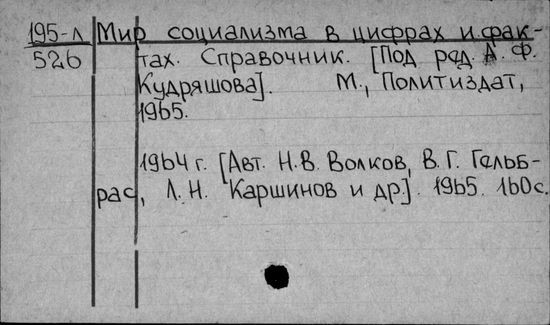 195-л Мир социализма в цифрах и фак-
526 тах. Справочник. [Под ред. А. Ф.
Кудряшова]. М., Политиздат,
1965.
1964 г. [Авт. Н.В. Волков, В.Г. Гальб-
рас, Л.Н. Каршинов и др.]. 1965. 160с.